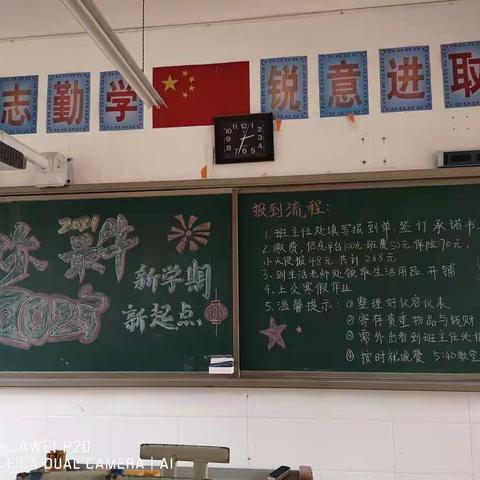 志勤学
锐意进取
2021
你最牛
2021
新学期
新起点
报到流程:
1.班主任处填写报到单.签打承诺书.
2.缴费,信息平台100元 班费50元 保险70元,
小天使报48元.共计268元
3.到生活老师处领取生活用品.开铺
4.上交寒假作业
5.温馨提示:①整理好仪容仪表
②寄存贵重物品与钱财
③需外出看到班主任处
④按时就晚餐 5:40教室
HUAWEI P20
LEICA DUAL CAMERA | AI